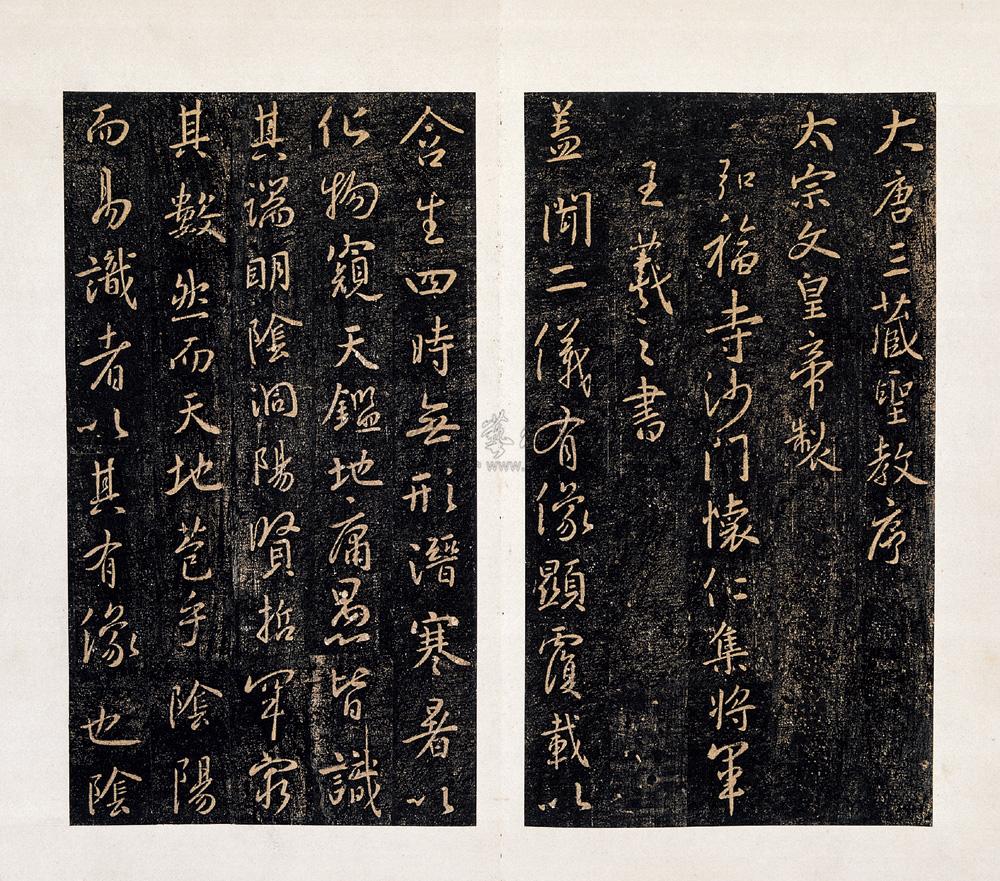 大唐三藏聖教序
太宗文皇帝製
弘福寺沙門懷仁集將軍
王羲之書
蓋聞二儀有像顯覆載以
含生四時無形潛寒暑以
化物窺天鑑地庸愚皆識
其端明陰洞陽賢哲罕窮
其數然而天地苞乎陰陽
而易識者以其有像也陰